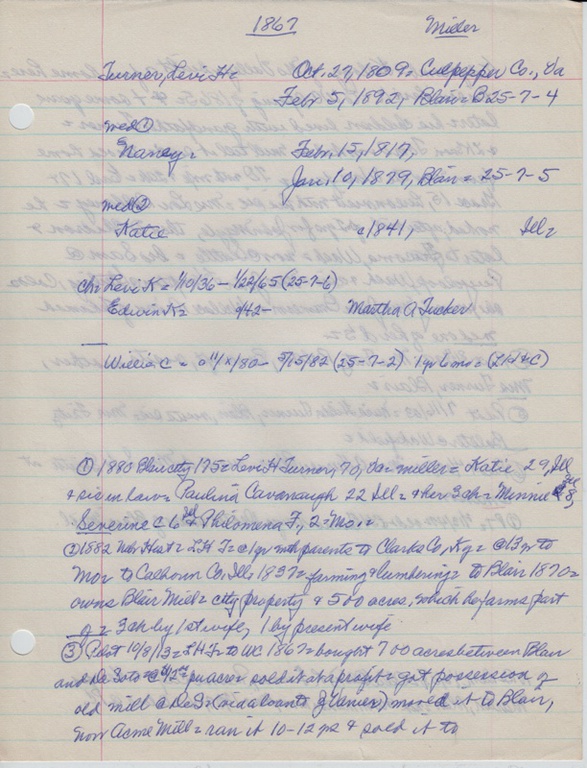 1867 Miller
Turner, Levi H = Oct. 27, 1809 = Culpepper Co., Va
Febr 5, 1892, Blair = B 25-7-4
med ①
Nancy = Febr. 15, 1817,
Jan. 10, 1879, Blair = 25-7-5
med ②
Katie c1841, Ill =
ch = Levi K = 1/10/36 - 1/22/65 (25-7-6)
Edwin K = 9/42 - Martha A Tucker
—
Willie C = 11/x/80 - 5/15/82 (25-7-2) 1 yr 6 mo = (LH & C)
① 1880 Blair city 175 = Levi H Turner, 70, Va = miller = Katie 29, Ill
& sis in law = Paulina Cavanaugh 22 Ill = & her 3 ch = Minnie 8,
Severine C 6 & Philomena F, 2 = Mo. =
② 1882 Nebr Hist = L H T = @ 1 yr with parents to Clarks Co, Ky = @ 13 yr to
Mo = to Calhoun Co, Ill, 1837 = farming & lumbering = to Blair 1870 =
owns Blair Mill = city property & 500 acres, which he farms part
of = 3 ch by 1st wife, 1 by present wife
③ Pilot 10/8/13 = L H T to WC 1867 = bought 700 acres between Blair
and De Soto @ per acre sold it at a profit = got possession of
old mill @ DeS moved it to Blair,
now Acme Mill = ran it 10-12 yrs & sold it to